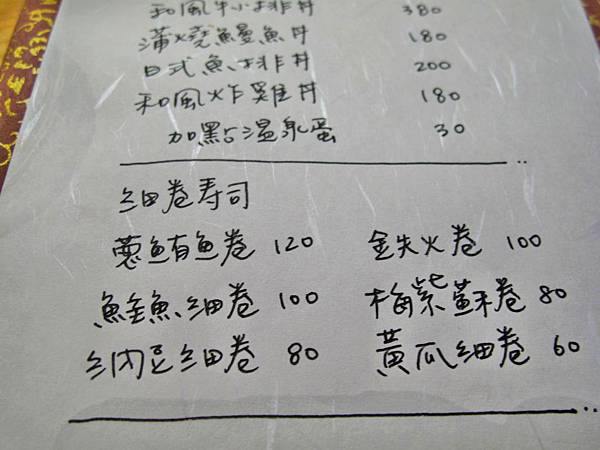 和風牛小排丼 380
蒲燒鰻魚丼 180
日式魚排丼 200
和風炸雞丼 180
加點溫泉蛋 30
細卷寿司
蔥鮪魚卷 120 鉄火卷 100
鮭魚細卷 100 梅紫蘇卷 80
納豆細卷 80 黃瓜細卷 60